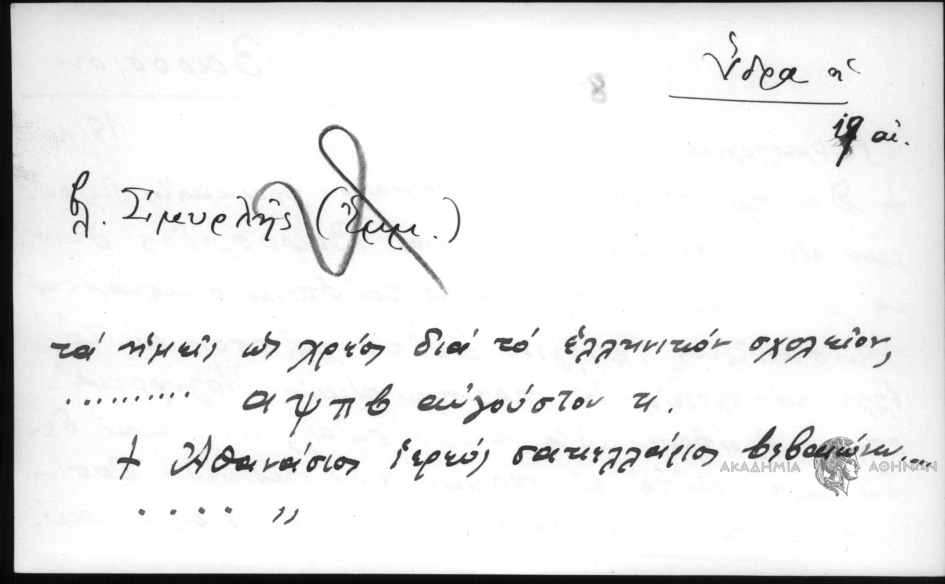 Ὕδρα η΄
19 αἰ.
βλ. Σιμυρλῆς (Ἐμμ.)
τά ἡμεῖς ὡς χρέος διά τό ἑλληνικόν σχολεῖον,
.......... αψπβ αὐγούστου κ.
+ Ἀθανάσιος ἱερεύς σακελλάριος βεβαιώνω....
.... ,,
ΑΚΑΔΗΜΙΑ ΑΘΗΝΩΝ